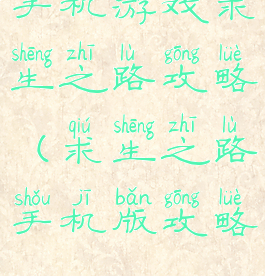 手机游戏求
shēng zhī lù gōng lüè
生之路攻略
qiú shēng zhī lù
（求生之路
shǒu jī bǎn gōng lüè
手机版攻略